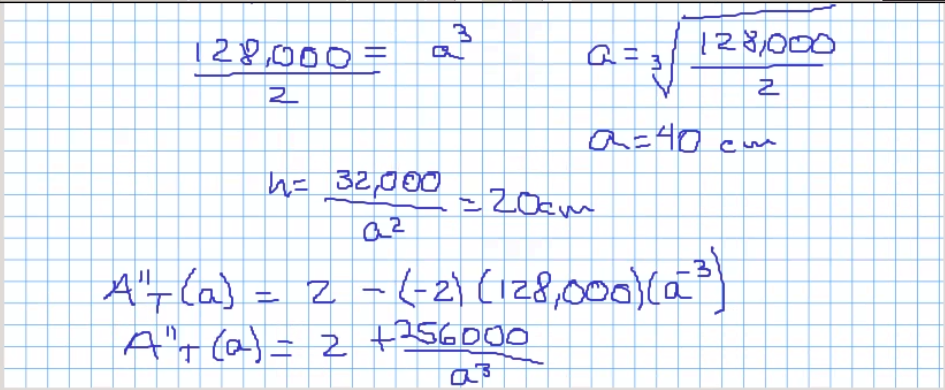 128,000/2 = a³
a = ∛(128,000/2)
a = 40 cm
h = 32,000/a² = 20cm
A"T (a) = 2 - (-2) (128,000)(a⁻³)
A"T (a) = 2 + 256000/a³